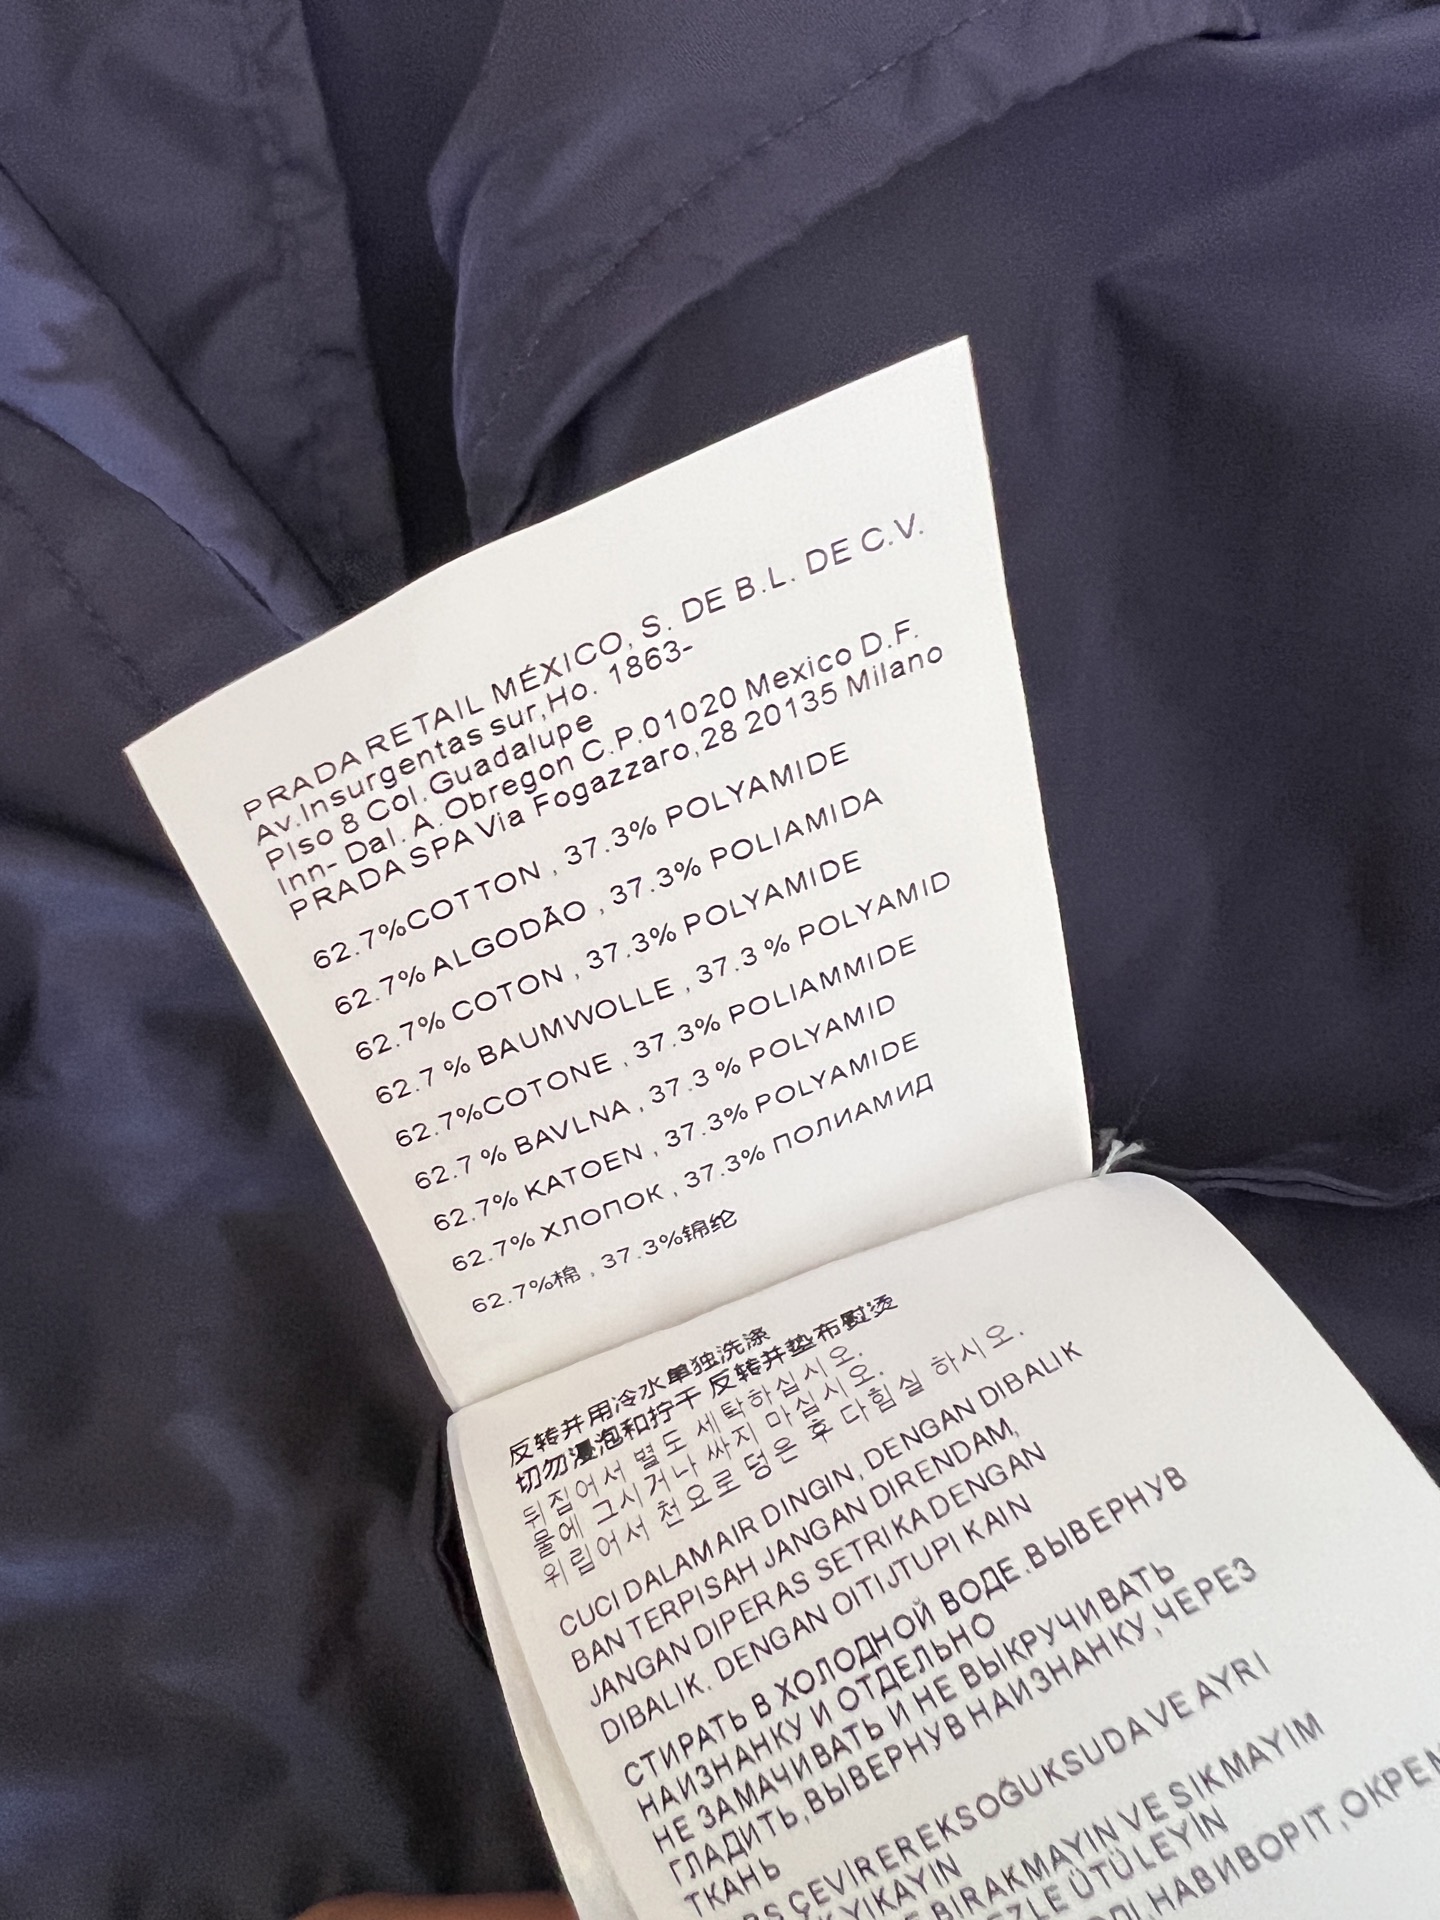 PRADA RETAIL MÉXICO, S. DE B.L. DE C.V.
Av.Insurgentas sur,Ho. 1863-
Plso 8 Col.Guadalupe
Inn- Dal. A.Obregon C.P.01020 Mexico D.F.
PRADA SPA Via Fogazzaro,28 20135 Milano
62.7%COTTON , 37.3% POLYAMIDE
62.7% ALGODÃO , 37.3% POLIAMIDA
62.7% COTON , 37.3% POLYAMIDE
62.7 % BAUMWOLLE , 37.3 % POLYAMID
62.7%COTONE , 37.3% POLIAMMIDE
62.7 % BAVLNA , 37.3 % POLYAMID
62.7% KATOEN , 37.3% POLYAMIDE
62.7% ХЛОПОК , 37.3% ПОЛИАМИД
62.7%棉 , 37.3%锦纶
反转并用冷水单独洗涤
切勿浸泡和拧干 反转并垫布熨烫
뒤집어서 별도 세탁하십시오.
물에 그시거나 싸지 마십시오.
위립어서 천요로 덩은 후 다힘실 하시오.
CUCI DALAM AIR DINGIN, DENGAN DIBALIK
BAN TERPISAH JANGAN DIRENDAM,
JANGAN DIPERAS SETRIKA DENGAN
DIBALIK. DENGAN OITIJTUPI KAIN
СТИРАТЬ В ХОЛОДНОЙ ВОДЕ.ВЫВЕРНУВ
НАИЗНАНКУ И ОТДЕЛЬНО
НЕ ЗАМАЧИВАТЬ И НЕ ВЫКРУЧИВАТЬ
ГЛАДИТЬ,ВЫВЕРНУВ НАИЗНАНКУ,ЧЕРЕЗ
ТКАНЬ
ÇEVİREREK SOĞUK SUDA VE AYRI
YIKAYIN
BIRAKMAYIN VE SIKMAYIM
ÜTÜLEYİN
НАВИВОРІТ,ОКРЕМ